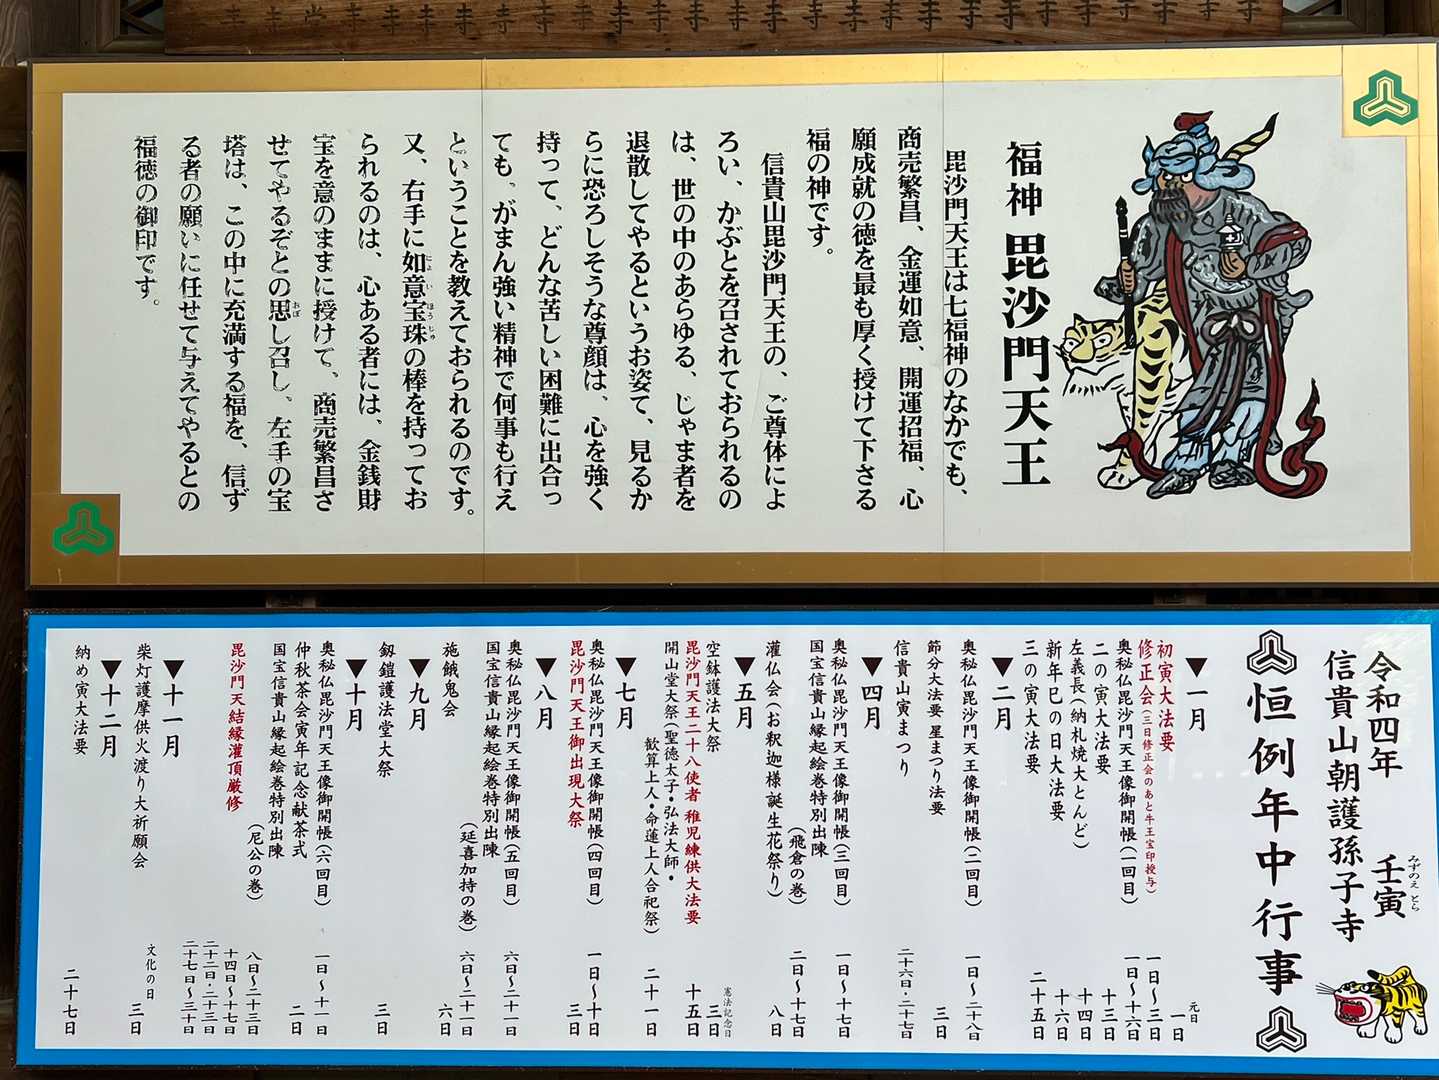 福神 毘沙門天王
毘沙門天王は七福神のなかでも、
商売繁昌、金運如意、開運招福、心
願成就の徳を最も厚く授けて下さる
福の神です。
信貴山毘沙門天王の、ご尊体によ
ろい、かぶとを召されておられるの
は、世の中のあらゆる、じゃま者を
退散してやるというお姿て、見るか
らに恐ろしそうな尊顔は、心を強く
持って、どんな苦しい困難に出合っ
ても、がまん強い精神で何事も行え
ということを教えておられるのです。
又、右手に如意宝珠の棒を持ってお
にょいほうじゅ
られるのは、心ある者には、金銭財
宝を意のままに授けて、商売繁昌さ
せてやるぞとの思し召し、左手の宝
おぼ
塔は、この中に充満する福を、信ず
る者の願いに任せて与えてやるとの
福徳の御印です。
令和四年 壬寅
みずのえ とら
信貴山朝護孫子寺
恒例年中行事
▼一月
元日
初寅大法要 一日
修正会(三日修正会のあと牛王宝印授与) 一日〜三日
奥秘仏毘沙門天王像御開帳(一回目) 一日〜十六日
二の寅大法要 十三日
左義長(納札焼大とんど) 十四日
新年巳の日大法要 十六日
三の寅大法要 二十五日
▼二月
奥秘仏毘沙門天王像御開帳(二回目) 一日〜二十八日
節分大法要 星まつり法要 三日
信貴山寅まつり 二十六日・二十七日
▼四月
奥秘仏毘沙門天王像御開帳(三回目) 一日〜十七日
国宝信貴山縁起絵巻特別出陳
(飛倉の巻) 二日〜十七日
灌仏会(お釈迦様誕生花祭り) 八日
▼五月
憲法記念日
空鉢護法大祭 三日
毘沙門天王二十八使者 稚児練供大法要 十五日
開山堂大祭(聖徳太子・弘法大師・
歓算上人・命蓮上人合祀祭) 二十一日
▼七月
奥秘仏毘沙門天王像御開帳(四回目) 一日〜十日
毘沙門天王御出現大祭 三日
▼八月
奥秘仏毘沙門天王像御開帳(五回目) 六日〜二十一日
国宝信貴山縁起絵巻特別出陳
(延喜加持の巻) 六日〜二十一日
施餓鬼会 六日
▼九月
剱鎧護法堂大祭 三日
▼十月
奥秘仏毘沙門天王像御開帳(六回目) 一日〜十一日
仲秋茶会寅年記念献茶式 二日
国宝信貴山縁起絵巻特別出陳
(尼公の巻) 八日〜二十三日
毘沙門天結縁灌頂厳修 十四日〜十七日
二十二日・二十三日
二十七日〜三十日
▼十一月
文化の日
柴灯護摩供火渡り大祈願会 三日
▼十二月
納め寅大法要 二十七日